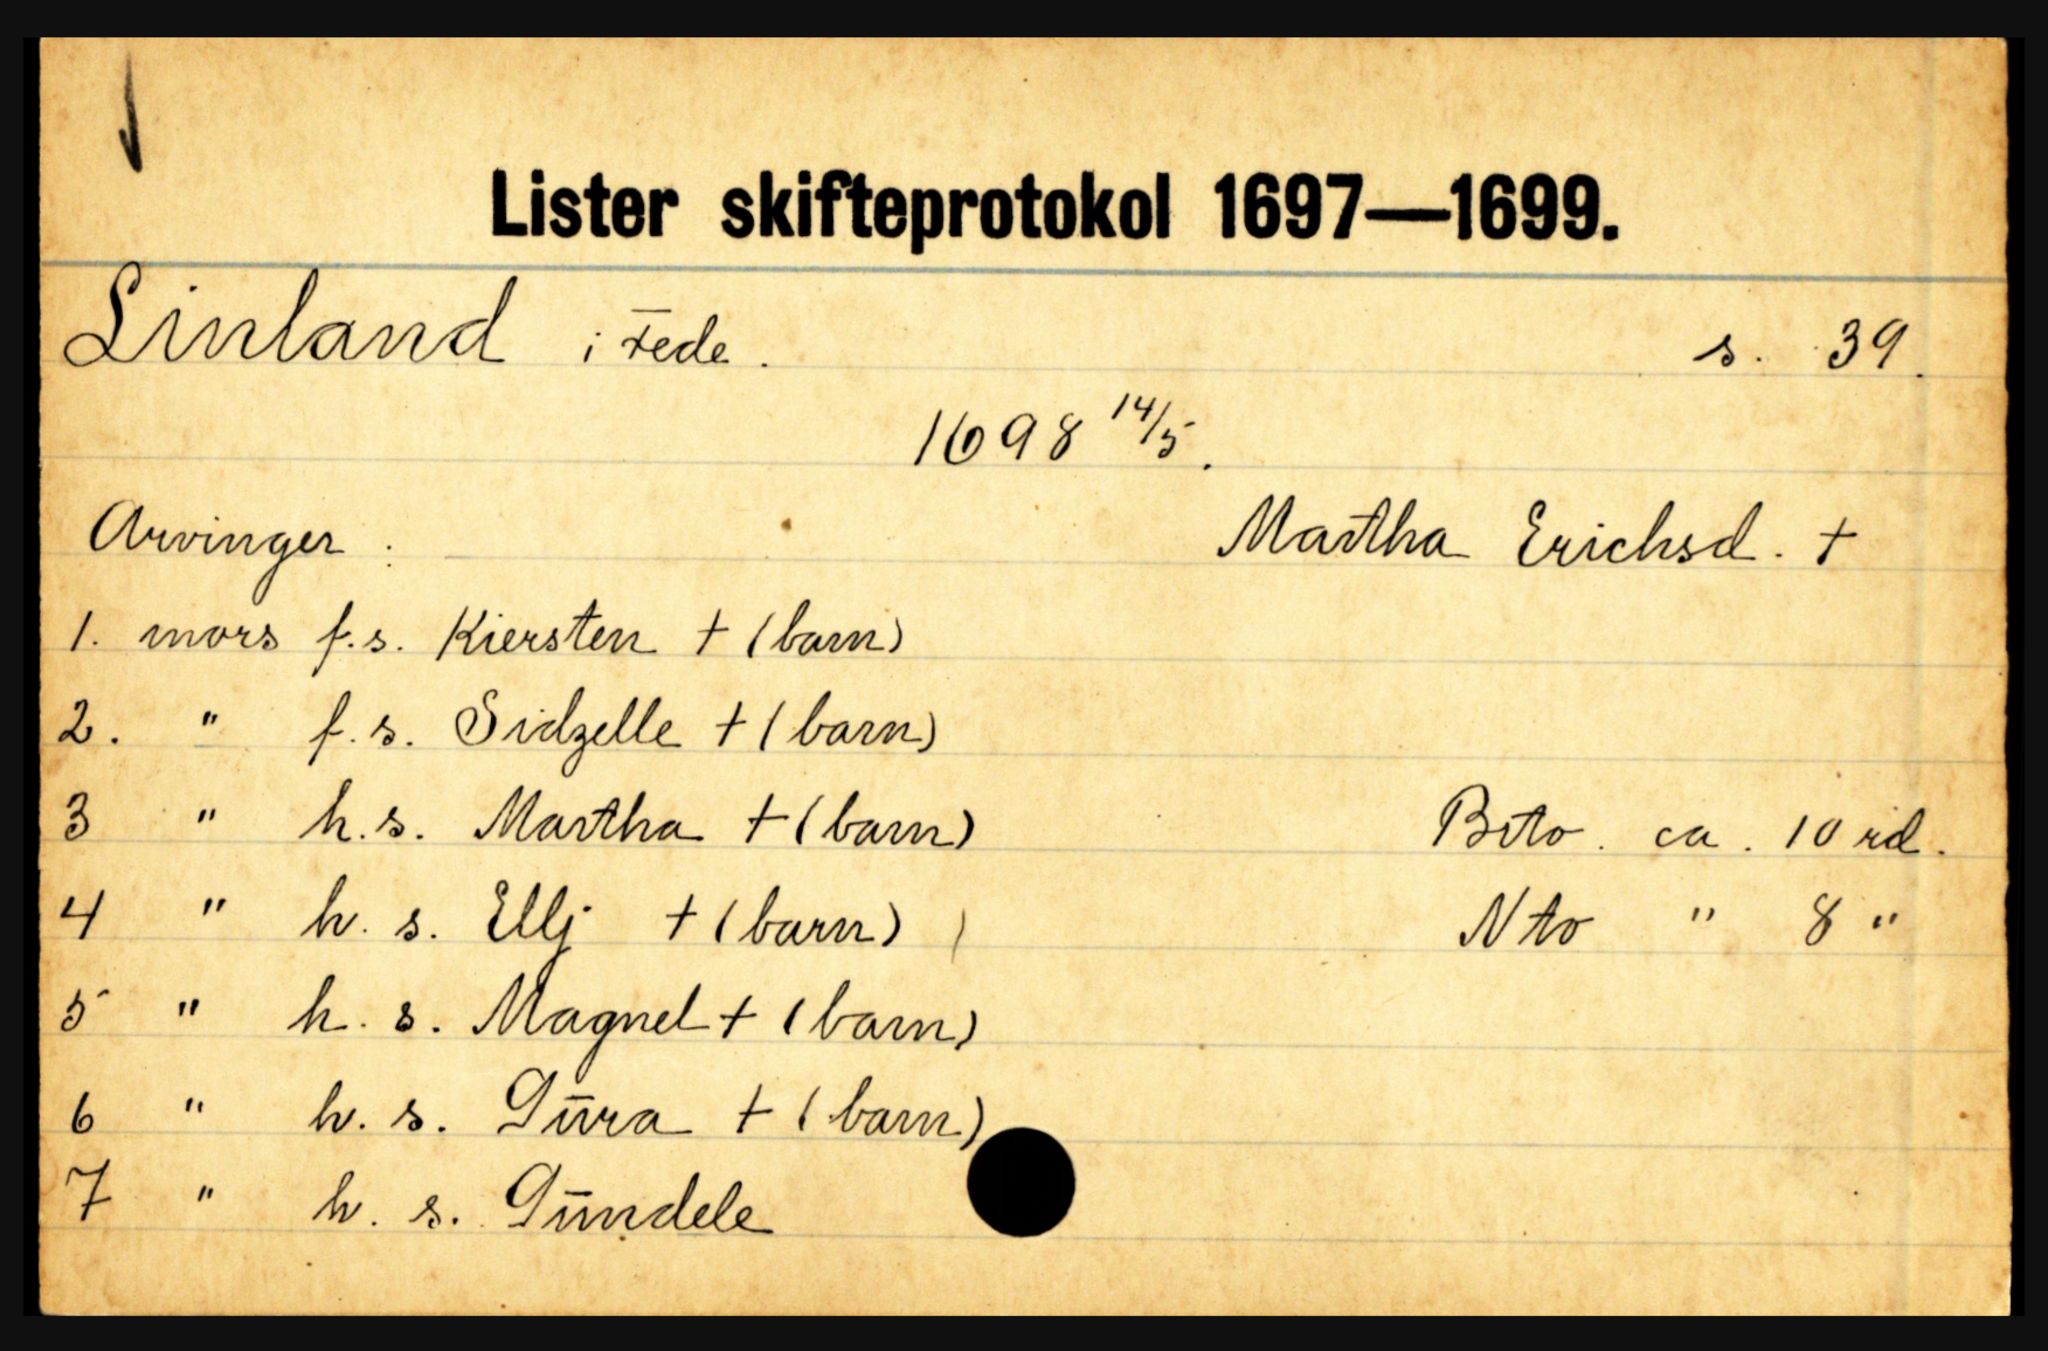 Lister skifteprotokol 1697—1699.
Linland i Fede. s. 39.
1698 14/5.
Arvinger: Martha Erichsd. +
1. mors f.s. Kiersten + (barn)
2. " f.s. Sidzelle + (barn)
3 " h.s. Martha + (barn) Brto. ca. 10 rd.
4 " h.s. Ellj + (barn) Nto " 8 "
5 " h.s. Magnel + (barn)
6 " h.s. Gūra + (barn)
7 " h.s. Gūndele